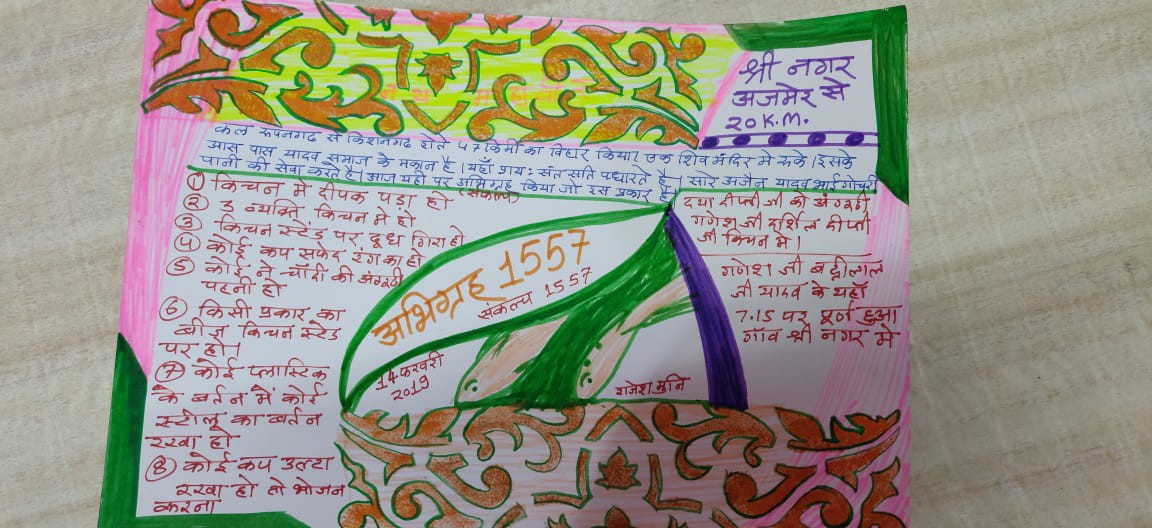 श्री नगर
अजमेर से
20 K.M.
कल रुपनगढ से किशनगढ होते 47 किमी का विहार किया। एक शिव मंदिर मे रुके। इसके
आस पास यादव समाज के मकान है। यहाँ प्राय: संत सति पधारते है। सारे अजैन यादव भाई गोचरी
पानी की सेवा करते है। आज यही पर अभिग्रह किया जो इस प्रकार है।
(संकल्प)
① किचन में दीपक पड़ा हो
② 3 व्यक्ति किचन मे हो
③ किचन स्टेंड पर दूध गिरा हो
④ कोई कप सफेद रंग का हो
⑤ कोई ने चांदी की अंगूठी
पहनी हो
⑥ किसी प्रकार का
बीज किचन स्टेंड
पर हो।
⑦ कोई प्लास्टिक
के बर्तन में कोई
स्टील का बर्तन
रखा हो
⑧ कोई कप उल्टा
रखा हो तो भोजन
करना
अभिग्रह 1557
संकल्प 1557
14 फरवरी
2019
राजेश मुनि
दया दीप्ती जी को अंगूठी
गणेश जी दर्शिल दीप्ती
जी किचन मे।
गणेश जी बद्रीलाल
जी यादव के यहाँ
7.15 पर पूर्ण हुआ
गाँव श्री नगर मे